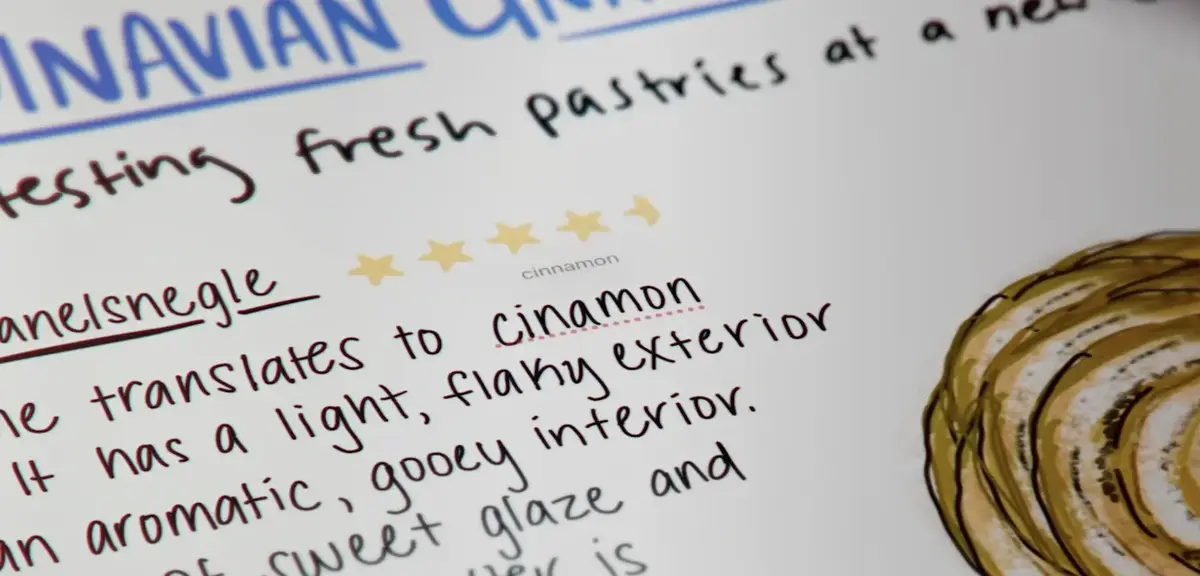 testing fresh pastries at a
cinnamon
translates to cinamon
It has a light, flaky exterior
an aromatic, gooey interior.
sweet glaze and
is